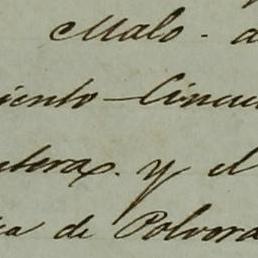 Malo - a
iento Cincu
utera. y el
ca de Polvora